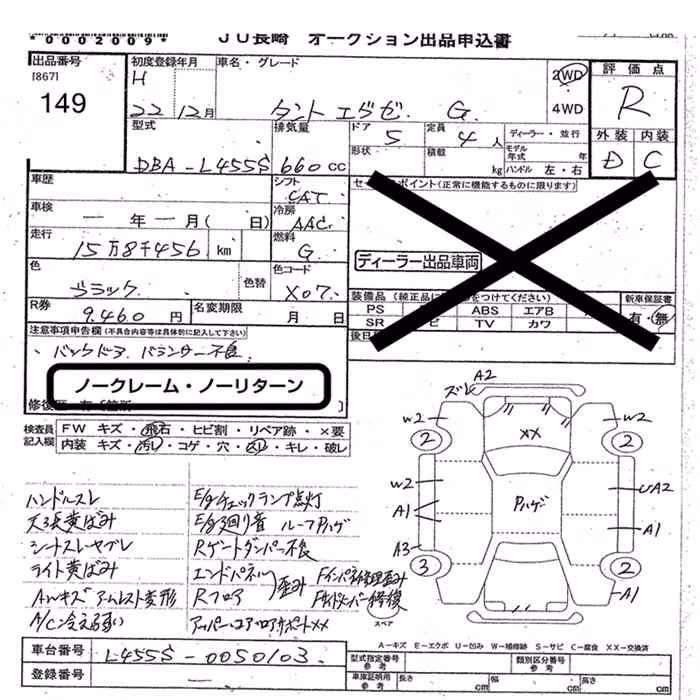 *0002009*
JU長崎 オークション出品申込書
出品番号
[867]
149
初度登録年月
H
22 12月
車名・グレード
タント エグゼ. G.
2WD
4WD
評価点
R
外装 内装
D C
型式
DBA-L455S
排気量
660 CC
ドア
5
定員
4人
形状
積載
kg
ディーラー・並行
モデル年式 年
ハンドル 左・右
車歴
シフト
CAT
車検
一年一月( 日)
冷房
AAC
走行
15万8千456 km
燃料
G
色
ブラック.
色替
色コード
X07.
R券
9.460 円
名変期限
月 日
セ ポイント(正常に機能するものに限ります)
ディーラー出品車両
装備品(純正品に をつけてください)
PS ABS エアB
SR ビ TV カワ
新車保証書
有・無
後日
注意事項申告欄(不具合内容等は具体的に記入して下さい)
、バックドア バランサー不良.
ノークレーム・ノーリターン
修復歴 有(箇所 )
検査員記入欄
FW キズ・飛石・ヒビ割・リペア跡・×要
内装 キズ・汚レ・コゲ・穴・スレ・キレ・破レ
ハンドルスレ
天張黄ばみ
シートスレヤブレ
ライト黄ばみ
AWキズ アームレスト変形
A/C冷え弱い
E/gチェックランプ点灯
E/g廻り音 ルーフPハゲ
Rゲートダンパー不良
エンドパネル
Rフロア
歪み
Fインパネ修理歪み
Fサイドメンバー修復
アッパーコアコアサポート××
A2
ズレ
W2
W2
2
2
××
W2
A1
A3
Pハゲ
UA2
A1
3
2
A1
スペア
A-キズ E-エクボ U-凹み W-補修跡 S-サビ C-腐食 ××-交換済
車台番号
L455S-0050103.
登録番号
型式指定番号
参考
類別区分番号
参考
車庫証明用
参考
長さ cm
幅 cm
高さ cm